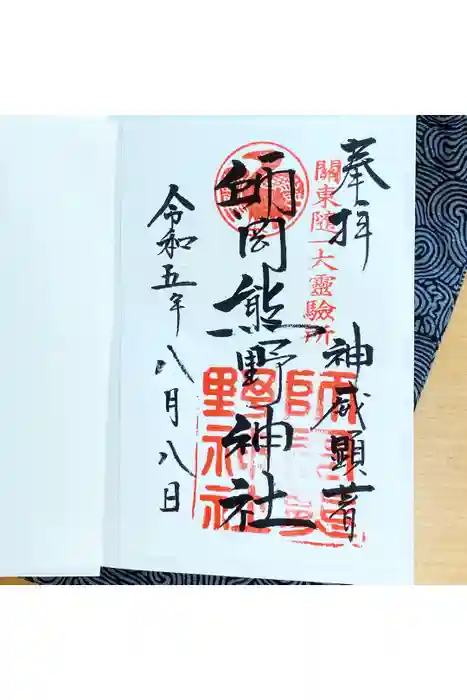 奉拝
關東随一大靈驗所
神威顕著
師岡熊野神社
師岡熊野神社
令和五年八月八日